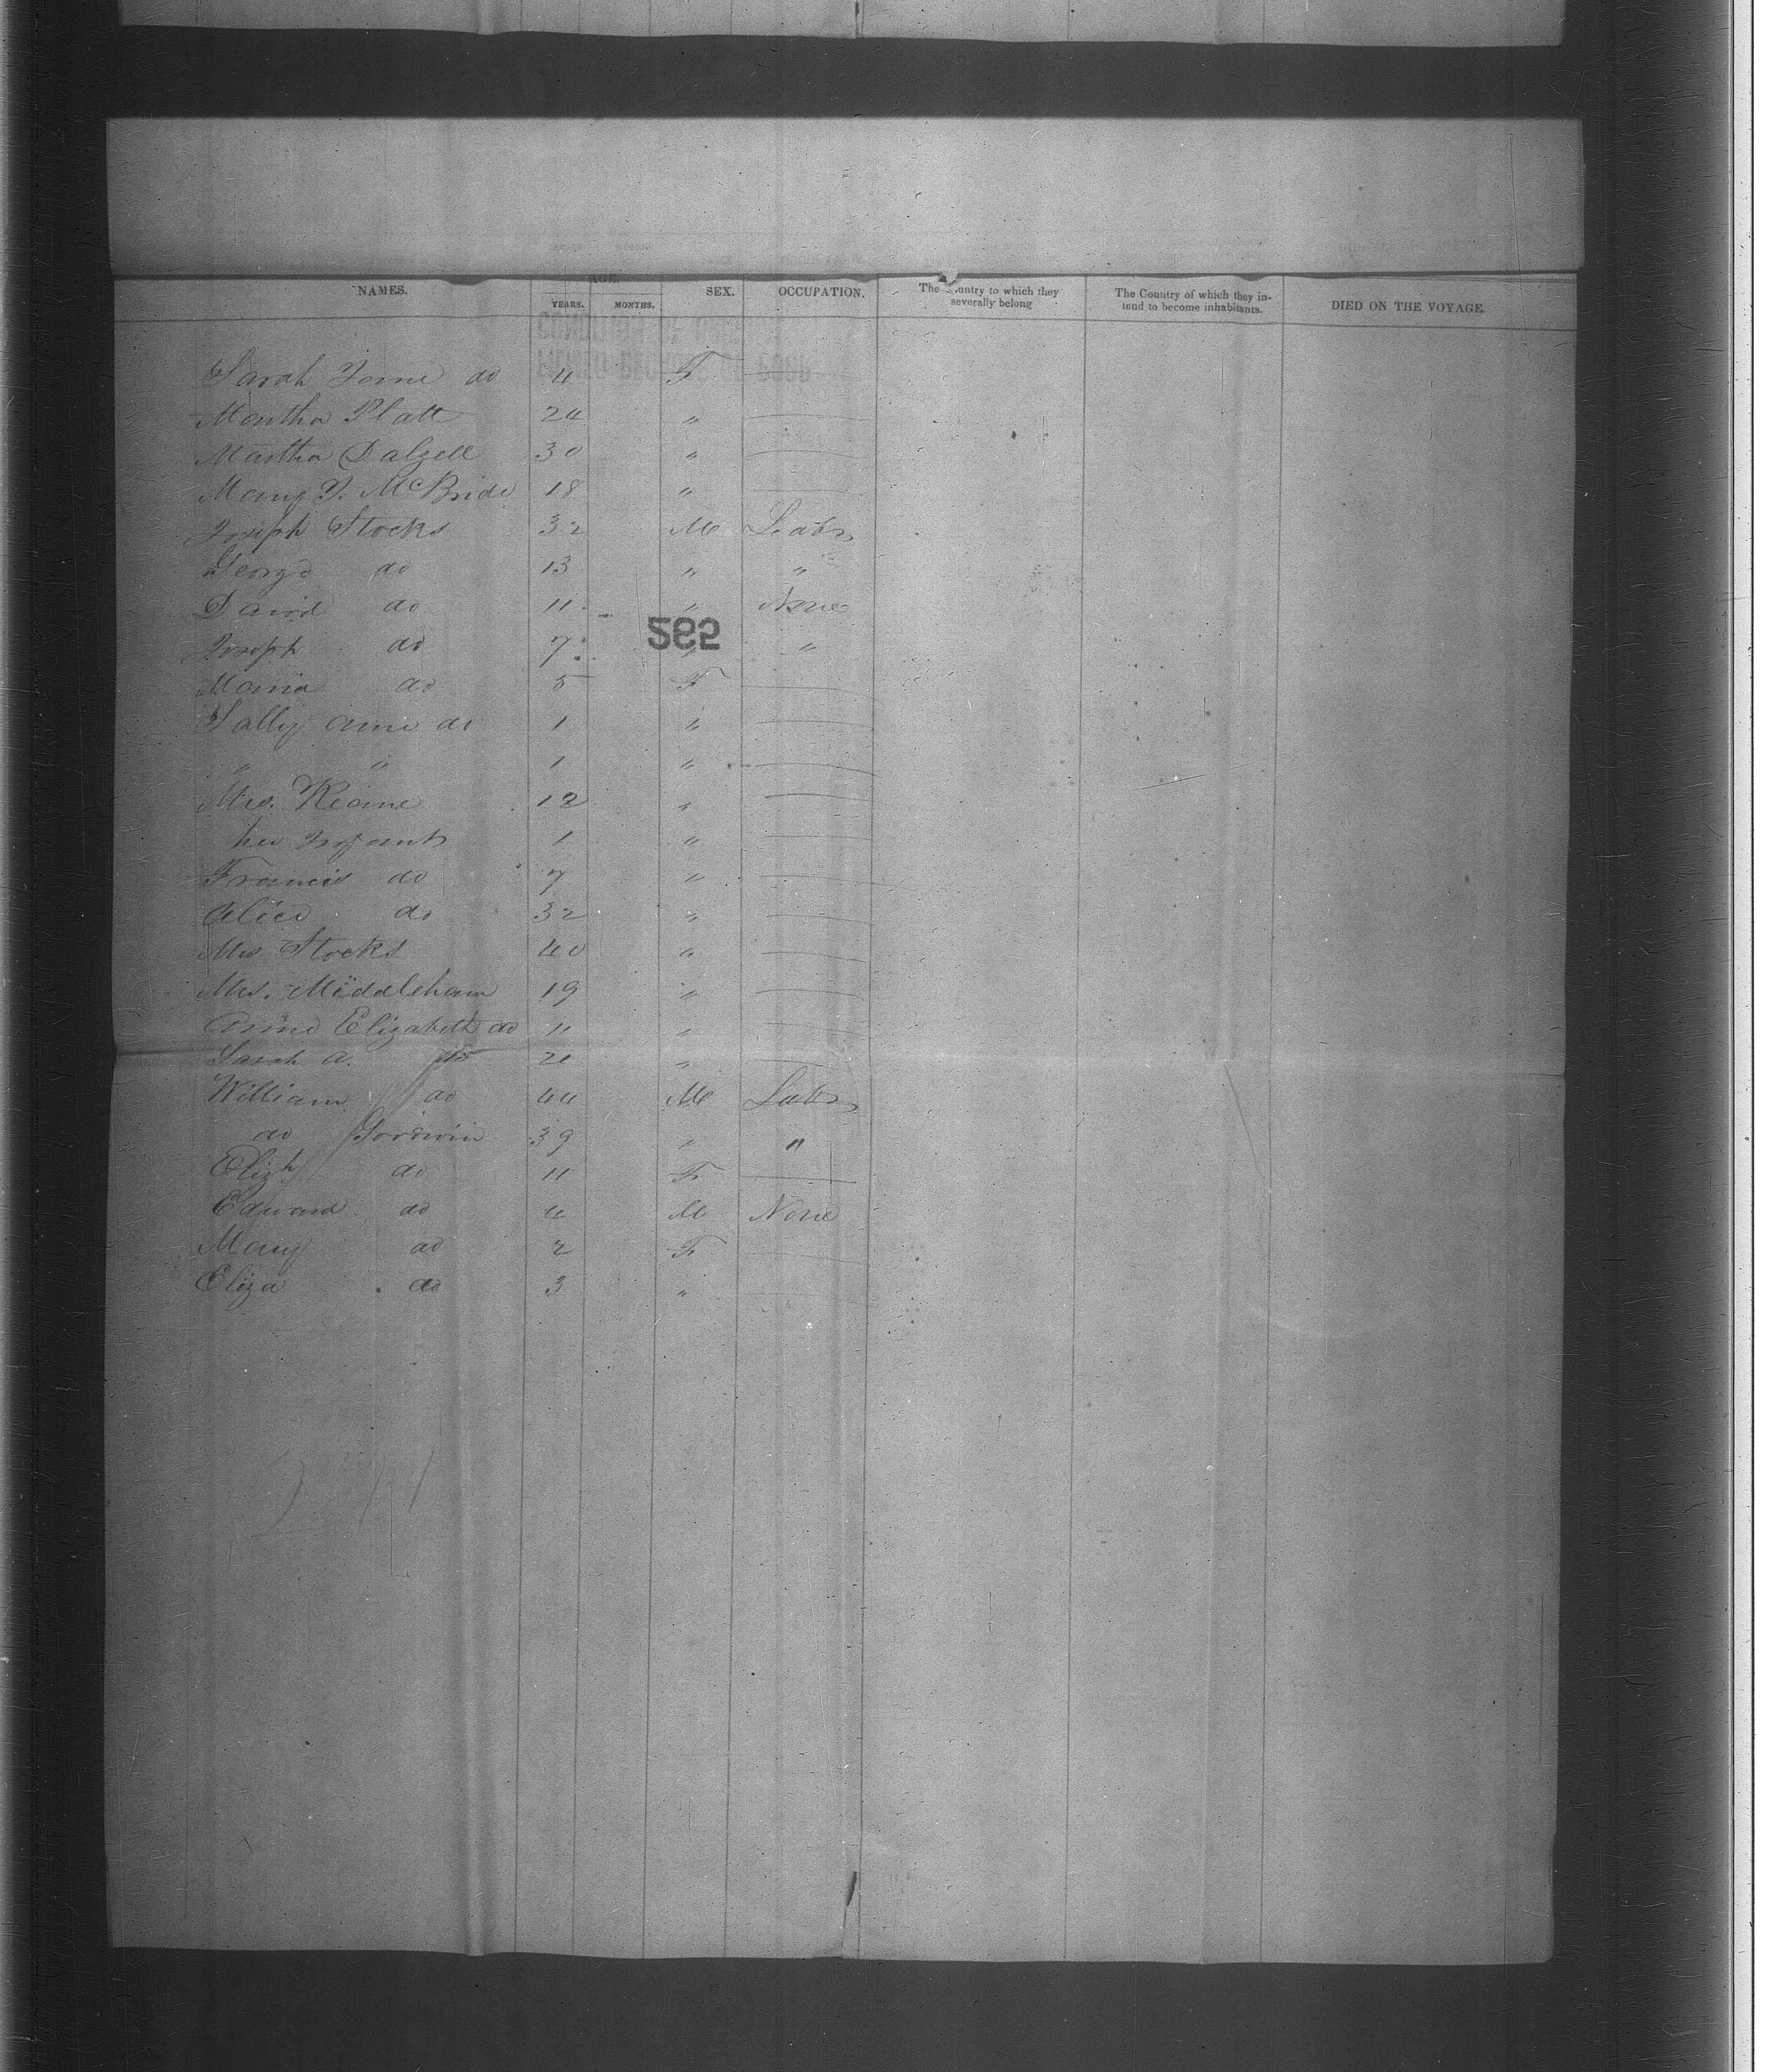 NAMES. AGE. YEARS. MONTHS. SEX. OCCUPATION. The Country to which they severally belong The Country of which they intend to become inhabitants. DIED ON THE VOYAGE.
Sarah Jane do 4 F
Martha Platt 24 "
Martha Dalzell 30 "
Mary J. McBride 18 "
Joseph Stocks 32 M Labr
George do 13 " "
David do 11 " None
Joseph do 7 " "
582
Maria do 5 F
Sally Anne do 1 "
" " 1 "
Mrs. Keane 12 "
her Infant 1 "
Francis do 7 "
Alice do 32 "
Mrs Stocks 40 "
Mrs. Middleham 19 "
Anne Elizabeth do 11 "
Sarah A. do "
William do 44 M Labr
do Goodwin 39 " "
Elizh do 11 F
Edward do 4 M None
Mary do 2 F
Eliza do 3 "